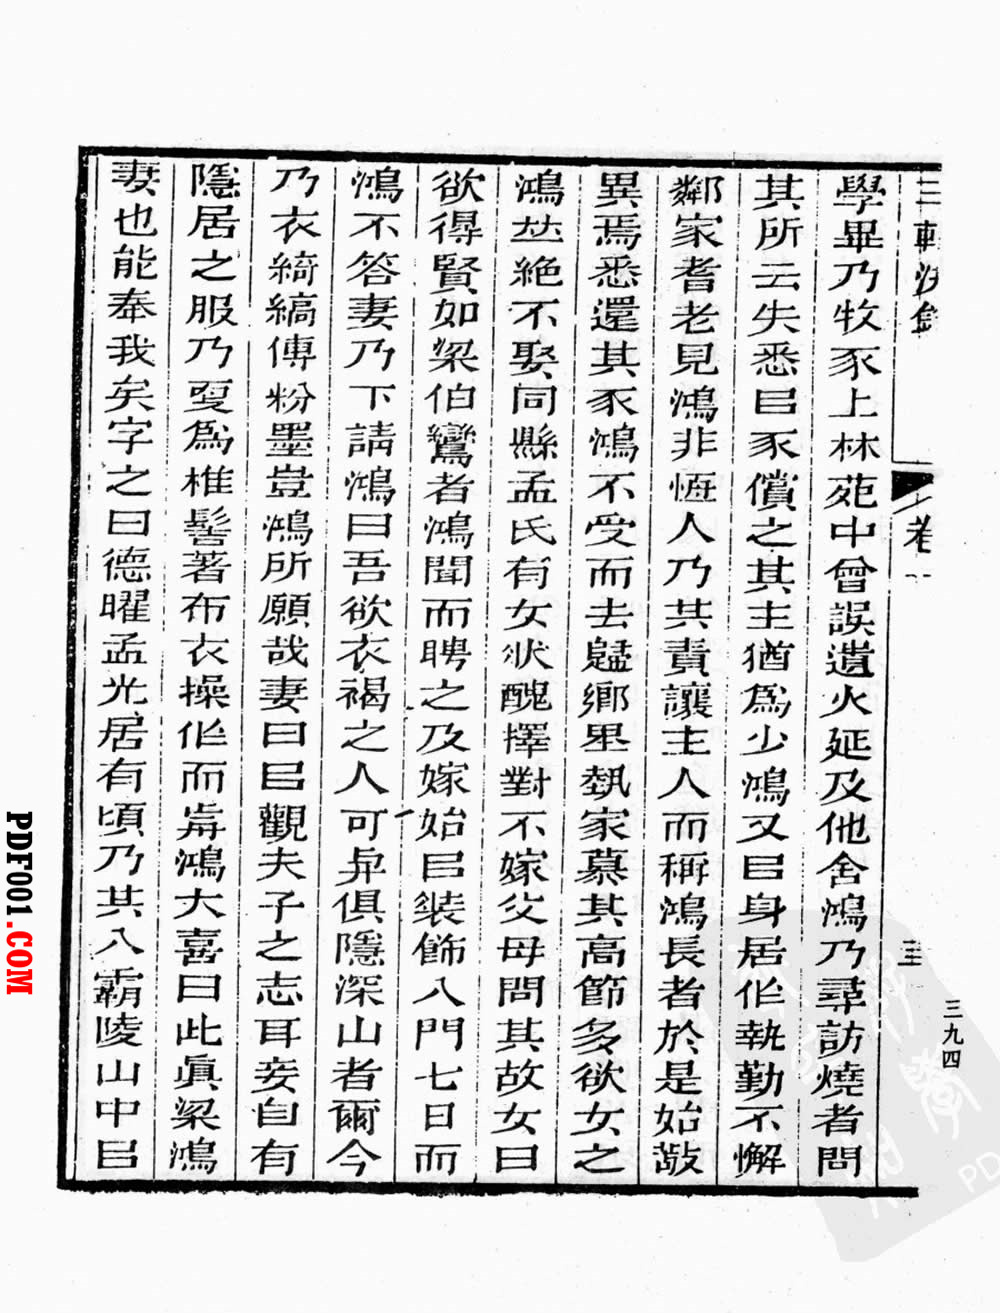 三輔決錄
卷一
三
三九四
學畢乃牧豕上林苑中曾誤遺火延及他舍鴻乃尋訪燒者問
其所云失悉㠯豕償之其主猶爲少鴻又㠯身居作執勤不懈
鄰家耆老見鴻非恆人乃共責讓主人而稱鴻長者於是始敬
異焉悉還其豕鴻不受而去歸鄉里埶家慕其高節多欲女之
鴻竝絕不娶同縣孟氏有女狀醜擇對不嫁父母問其故女曰
欲得賢如梁伯鸞者鴻聞而聘之及嫁始㠯裝飾入門七日而
鴻不答妻乃下請鴻曰吾欲衣褐之人可與俱隱深山者爾今
乃衣綺縞傅粉墨豈鴻所願哉妻曰㠯觀夫子之志耳妾自有
隱居之服乃更爲椎髻著布衣操作而歬鴻大喜曰此眞梁鴻
妻也能奉我矣字之曰德曜孟光居有頃乃共入霸陵山中㠯
PDF001.COM